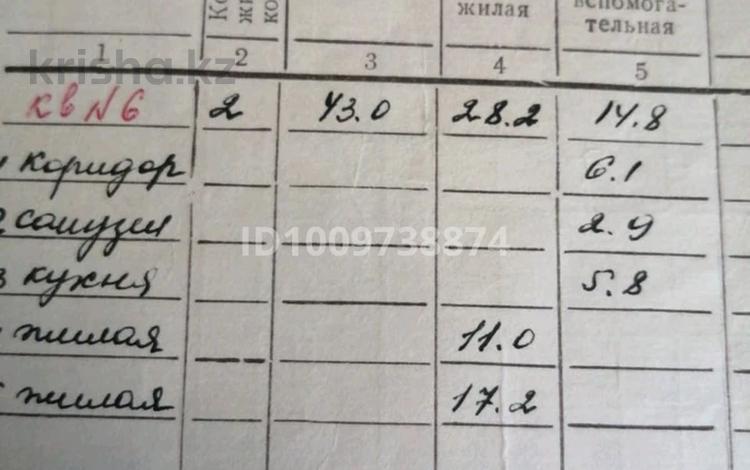 Ко
жи
ко
жилая
вспомога-
тельная
1 2 3 4 5
krisha.kz
кв N 6 2 43.0 28.2 14.8
коридор 6.1
2 санузел 2.9
ID1009738874
3 кухня 5.8
жилая 11.0
жилая 17.2